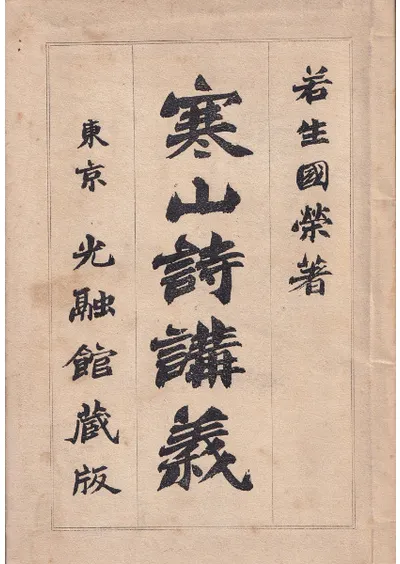 若生國榮著
寒山詩講義
東京 光融館蔵版